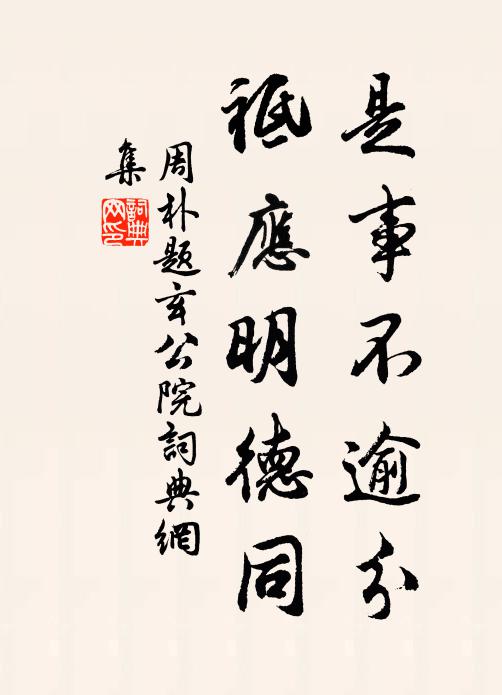 是事不逾分
祗應明德同
周朴题玄公院詞典網
集
詞典網印